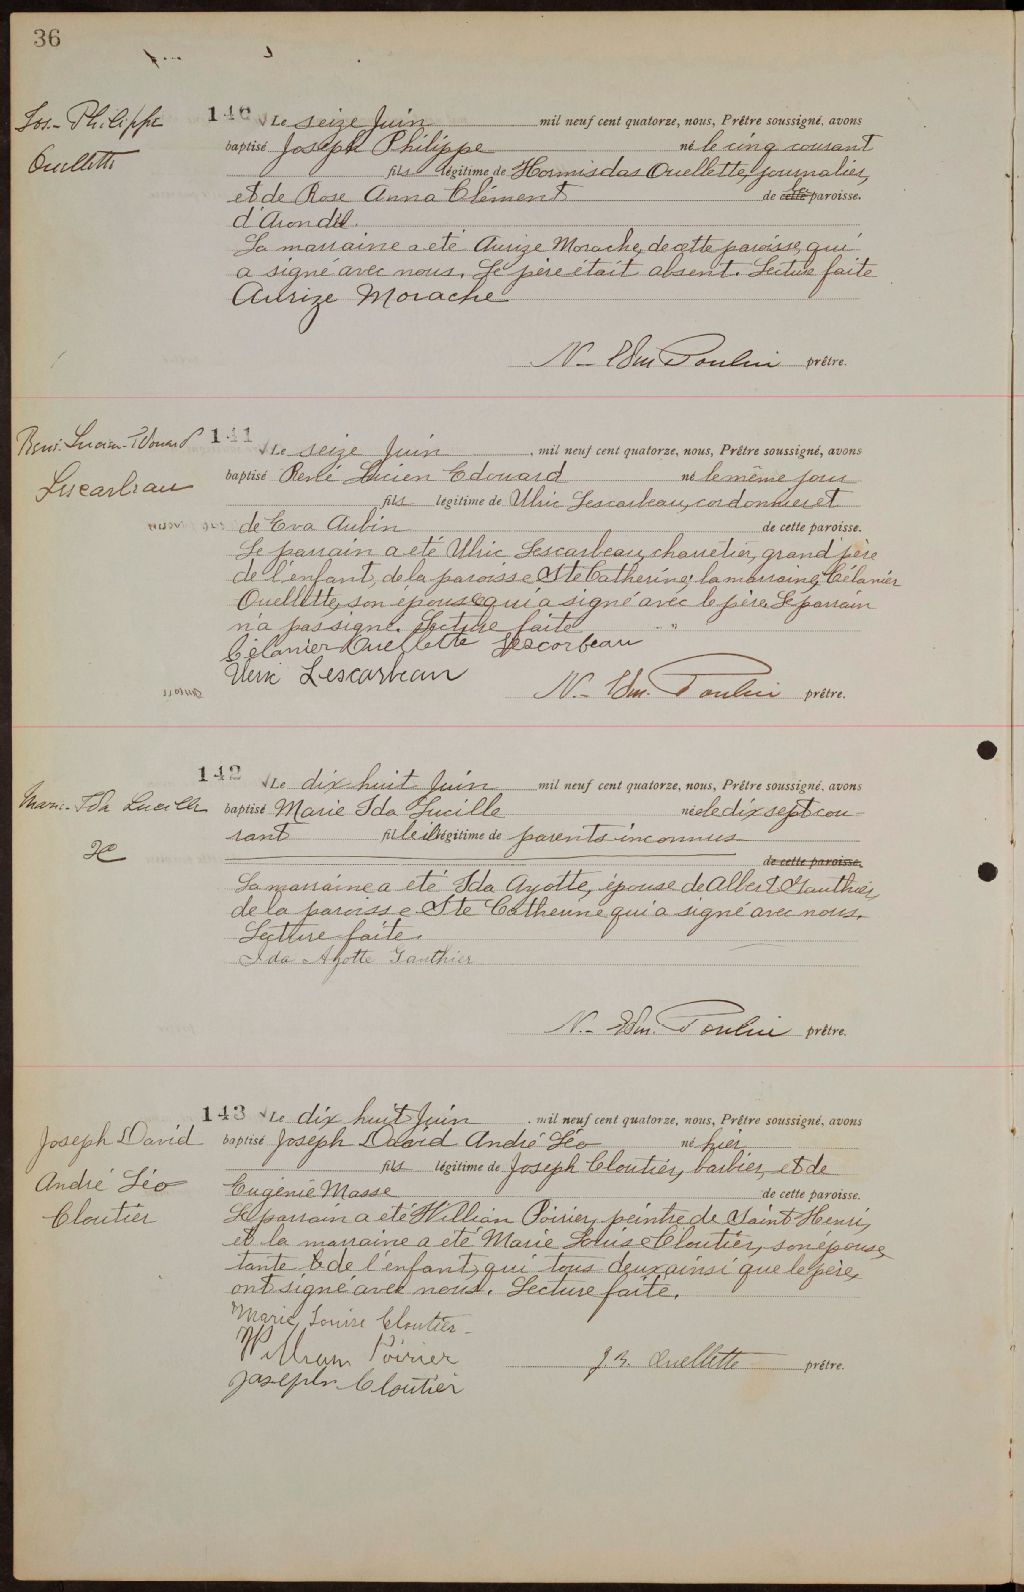 36
Jos.- Philippe
Ouellette
140 Le seize Juin mil neuf cent quatorze, nous, Prêtre soussigné, avons
baptisé Joseph Philippe né le cinq courant
fils légitime de Hormisdas Ouellette, journalier,
et de Rose Anna Clément de cette paroisse.
d'Arondel.
La marraine a eté Aurize Morache, de cette paroisse, qui
a signé avec nous. Le père était absent. Lecture faite
Aurize Morache
N- Edm Poulin prêtre.
René-Lucien-Edouard
Lescarbeau
141 Le seize Juin, mil neuf cent quatorze, nous, Prêtre soussigné, avons
baptisé René Lucien Edouard né le même jour
fils légitime de Ulric Lescarbeau, cordonnier et
de Eva Aubin de cette paroisse.
Le parrain a eté Ulric Lescarbeau, charretier, grand'père
de l'enfant, de la paroisse Ste Catherine; la marraine, Célanier
Ouellette, son épouse qui a signé avec le père. Le parrain
n'a pas signé. Lecture faite
Célanier Ouellette Lescorbeau
Ulric Lescarbeau
N- Edm. Poulin prêtre.
Marie-Ida Lucille
142 Le dix huit Juin mil neuf cent quatorze, nous, Prêtre soussigné, avons
baptisé Marie Ida Lucille née le dix sept cou-
rant fille légitime de parents inconnus
de cette paroisse.
La marraine a eté Ida Ayotte, épouse de Albert Gauthier,
de la paroisse Ste Catherine qui a signé avec nous.
Lecture faite.
Ida Ayotte Gauthier
N.- Edm. Poulin prêtre.
Joseph David
André Léo
Cloutier
143 Le dix huit Juin, mil neuf cent quatorze, nous, Prêtre soussigné, avons
baptisé Joseph David André Léo né hier
fils légitime de Joseph Cloutier, barbier, et de
Eugénie Masse de cette paroisse.
Le parrain a eté Willian Poirier, peintre de Saint-Henri,
et la marraine a eté Marie Louise Cloutier, son épouse,
tante de l'enfant, qui tous deux ainsi que le père,
ont signé avec nous. Lecture faite.
Marie Louise Cloutier-
William Poirier
Joseph Cloutier
J. B. Ouellette prêtre.